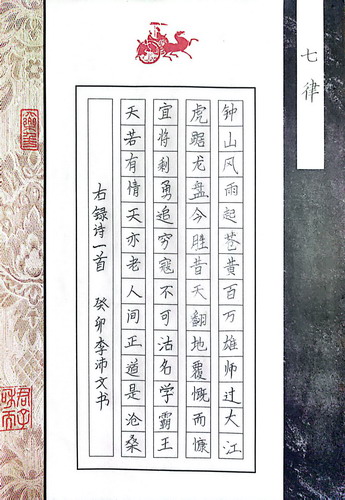 七律
钟山风雨起苍黄百万雄师过大江
虎踞龙盘今胜昔天翻地覆慨而慷
宜将剩勇追穷寇不可沽名学霸王
天若有情天亦老人间正道是沧桑
右録诗一首 癸卯李沛文书